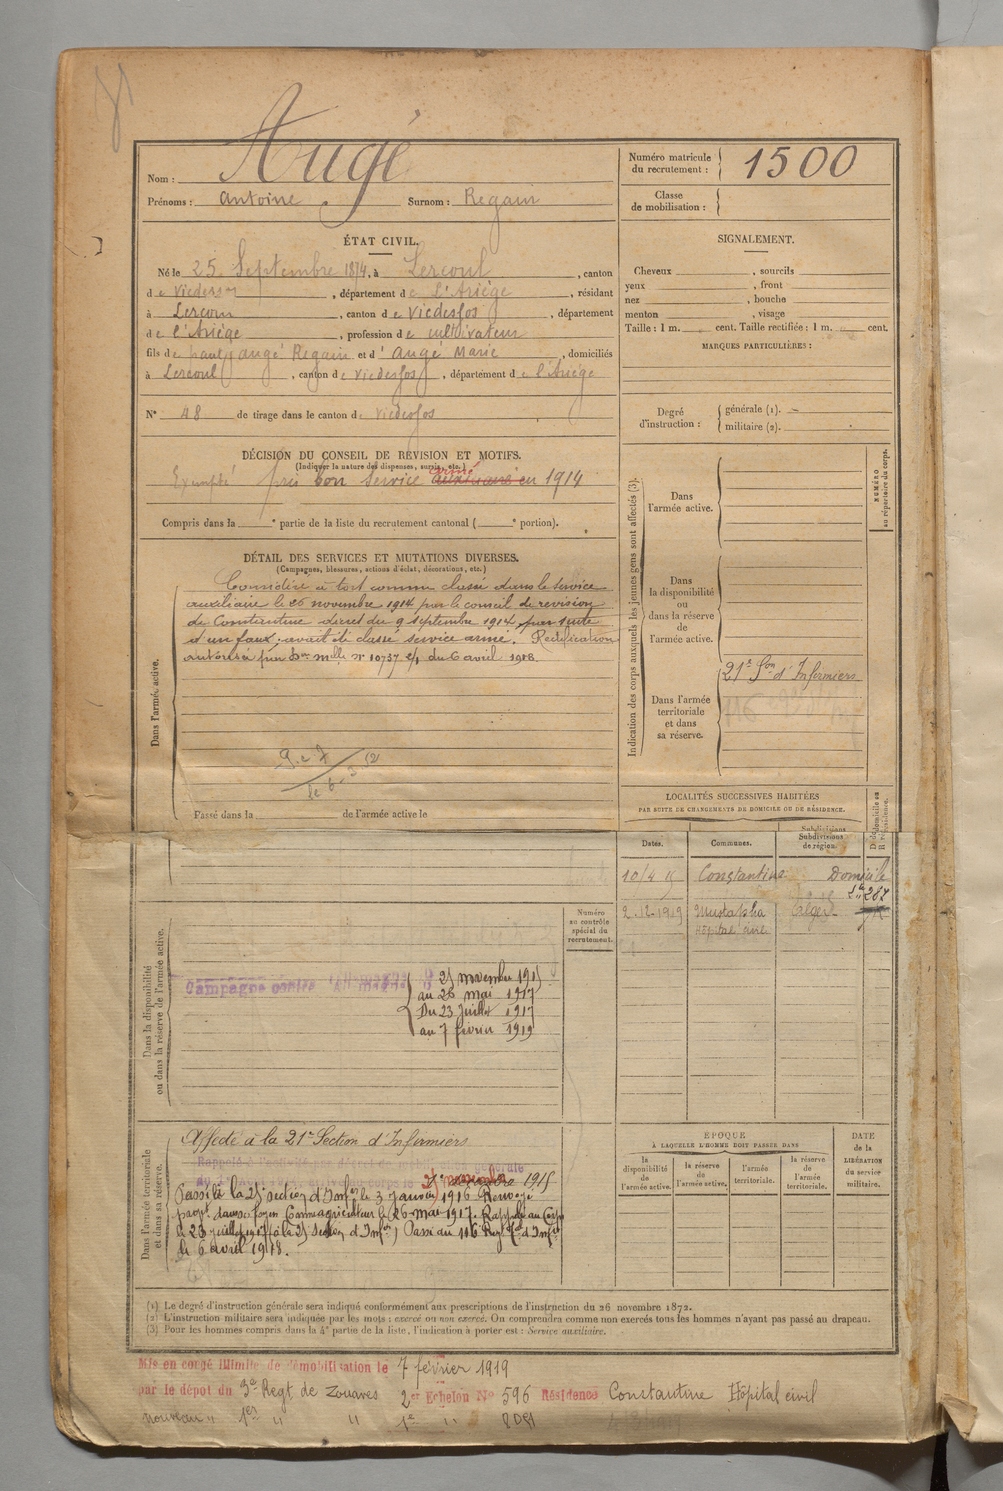 Nom : Augé
Prénoms : Antoine Surnom : Regain
Numéro matricule du recrutement : 1500
Classe de mobilisation :
ÉTAT CIVIL.
Né le 25 Septembre 1874, à Lercoul, canton
de Vicdessos, département de L'Ariège, résidant
à Lercoul, canton de Vicdessos, département
de l'Ariège, profession de cultivateur
fils de paul Augé Regain et d' Augé Marie, domiciliés
à Lercoul, canton de Vicdessos, département de l'Ariège
N° 48 de tirage dans le canton de Vicdessos
SIGNALEMENT.
Cheveux , sourcils
yeux , front
nez , bouche
menton , visage
Taille : 1 m. cent. Taille rectifiée : 1 m. cent.
MARQUES PARTICULIÈRES :
Degré d'instruction : générale (1).
militaire (2).
DÉCISION DU CONSEIL DE RÉVISION ET MOTIFS.
(Indiquer la nature des dispenses, sursis, etc.)
Exempté pris bon service armé auxiliaire en 1914
Compris dans la e partie de la liste du recrutement cantonal ( e portion).
DÉTAIL DES SERVICES ET MUTATIONS DIVERSES.
(Campagnes, blessures, actions d'éclat, décorations, etc.)
Dans l'armée active.
Considéré à tort comme classé dans le service
auxiliaire le 26 novembre 1914 par le conseil de revision
de Constantine décret du 9 septembre 1914 par suite
d'un faux, avait été classé service armé. Rectification
autorisée par Don mlle n° 10757 2/1 du 6 avril 1918.
Passé dans la de l'armée active le
Indication des corps auxquels les jeunes gens sont affectés (3).
Dans l'armée active.
Dans la disponibilité ou dans la réserve de l'armée active.
Dans l'armée territoriale et dans sa réserve.
21e Son d'Infirmiers
NUMÉRO au répertoire du corps.
LOCALITÉS SUCCESSIVES HABITÉES
PAR SUITE DE CHANGEMENTS DE DOMICILE OU DE RÉSIDENCE.
Dates. Communes. Subdivisions de région. D. domicile ou R. résidence.
10/4 15 Constantine Domicile
2-12-1919 Mustapha Alger
Hôpital civil
Dans la disponibilité ou dans la réserve de l'armée active.
Numéro au contrôle spécial du recrutement.
Campagne contre
25 novembre 1915
au 26 mai 1917
Du 23 Juillet 1917
au 7 février 1919
Dans l'armée territoriale et dans sa réserve.
Affecté à la 21e Section d'Infirmiers
Rappelé à l'activité par décret de mobilisation générale
1915
Passé à la section d'Infrs le 3 Janvier 1916 Renvoyé
dans foyer Comme agriculteur le 26 mai 1917. Rappelé au Corps
le 23 juillet 1917 à la Section d'Infrs Passé au 116e Regt d'Infie
le 6 avril 1918.
ÉPOQUE
À LAQUELLE L'HOMME DOIT PASSER DANS
la disponibilité de l'armée active. la réserve de l'armée active. l'armée territoriale. la réserve de l'armée territoriale.
DATE de la LIBÉRATION du service militaire.
(1) Le degré d'instruction générale sera indiqué conformément aux prescriptions de l'instruction du 26 novembre 1872.
(2) L'instruction militaire sera indiquée par les mots : exercé ou non exercé. On comprendra comme non exercés tous les hommes n'ayant pas passé au drapeau.
(3) Pour les hommes compris dans la 4e partie de la liste, l'indication à porter est : Service auxiliaire.
Mis en congé illimité de démobilisation le 7 février 1919
par le dépôt du 3e Regt de Zouaves 2e Echelon N° 596 Résidence Constantine Hôpital civil
nouveau " 1er " " 1e "